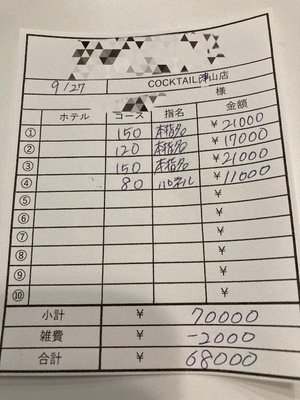 9/27 COCKTAIL津山店
様
ホテル コース 指名 金額
① 150 本指名 ¥21000
② 120 本指名 ¥17000
③ 150 本指名 ¥21000
④ 80 パネル ¥11000
⑤ ¥
⑥ ¥
⑦ ¥
⑧ ¥
⑨ ¥
⑩ ¥
小計 ¥ 70000
雑費 ¥ -2000
合計 ¥ 68000